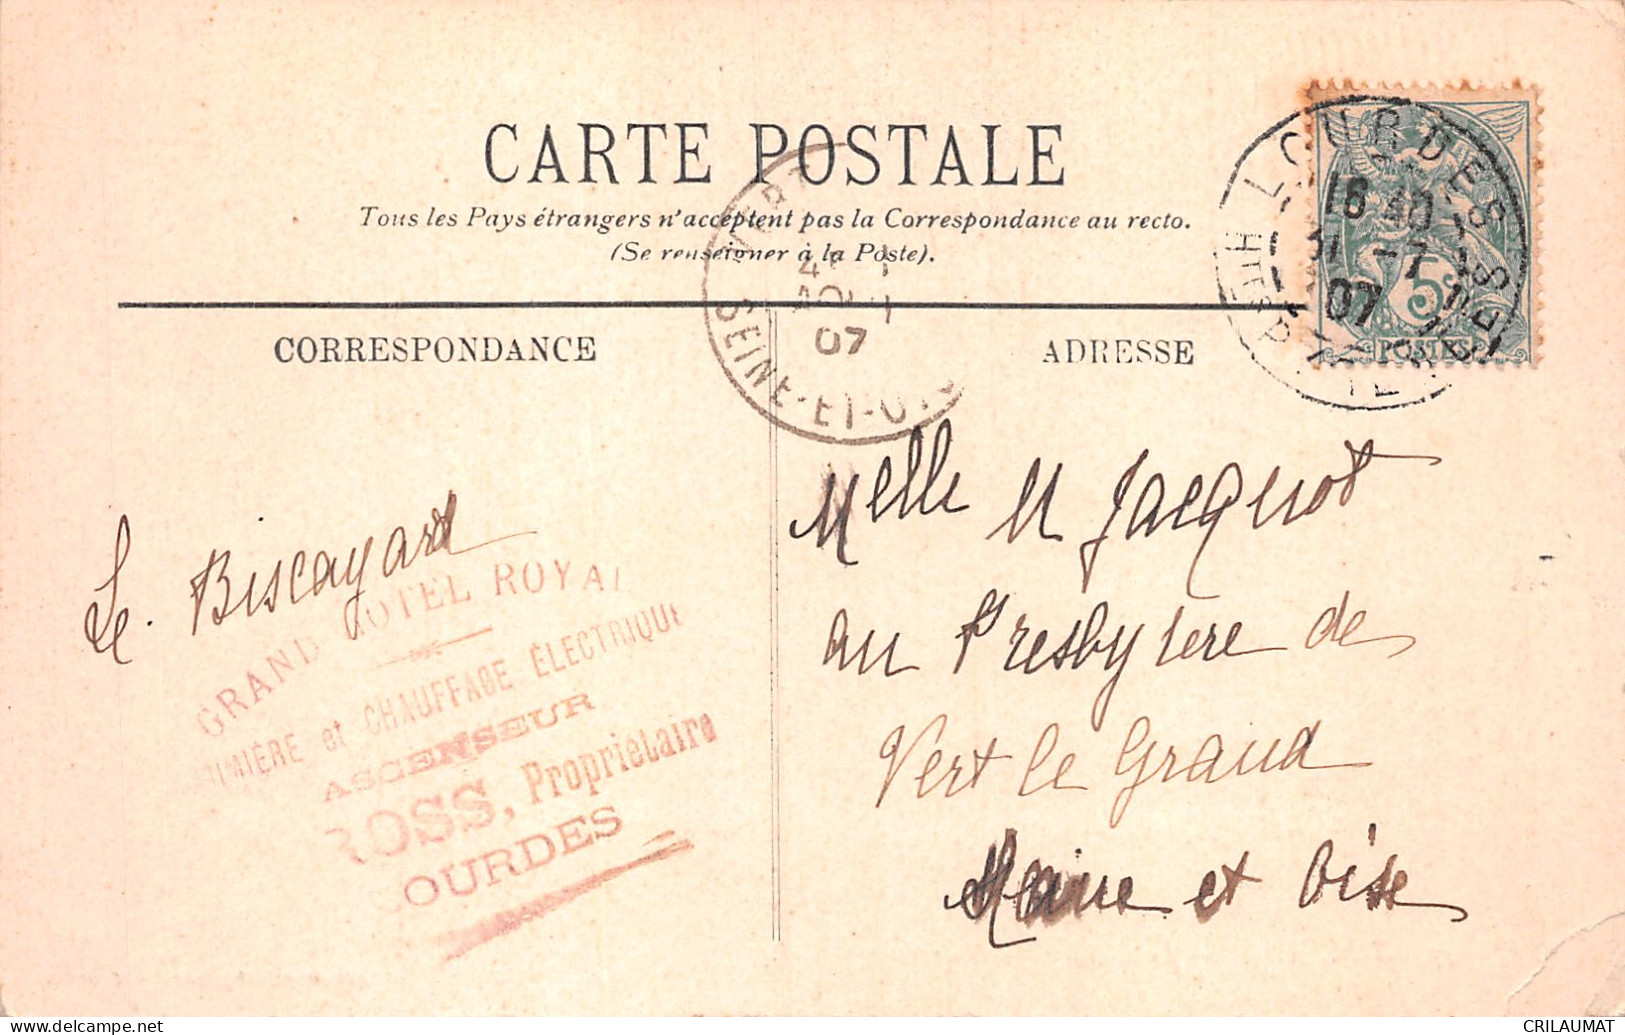 CARTE POSTALE
Tous les Pays étrangers n'acceptent pas la Correspondance au recto.
(Se renseigner à la Poste).
CORRESPONDANCE
ADRESSE
LOURDES
16 40
31 -7
07
HTES PYRÉNÉES
5c
POSTES
VERT
07
SEINE-ET-OIS
Melle M Jacquot
au Presbytere de
Vert le Grand
et Oise
Le. Biscayard
GRAND HOTEL ROYAL
LUMIÈRE et CHAUFFAGE ÉLECTRIQUE
ASCENSEUR
ROSS, Propriétaire
LOURDES
CRILAUMAT